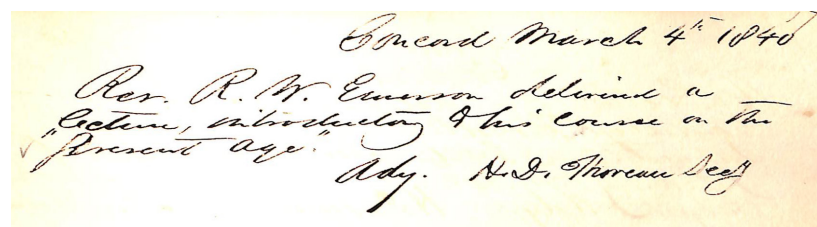 Concord March 4th 1840
Rev. R. W. Emerson delivered a
lecture, introductory to his course on the
"Present Age."
Adj. H. D. Thoreau Secy